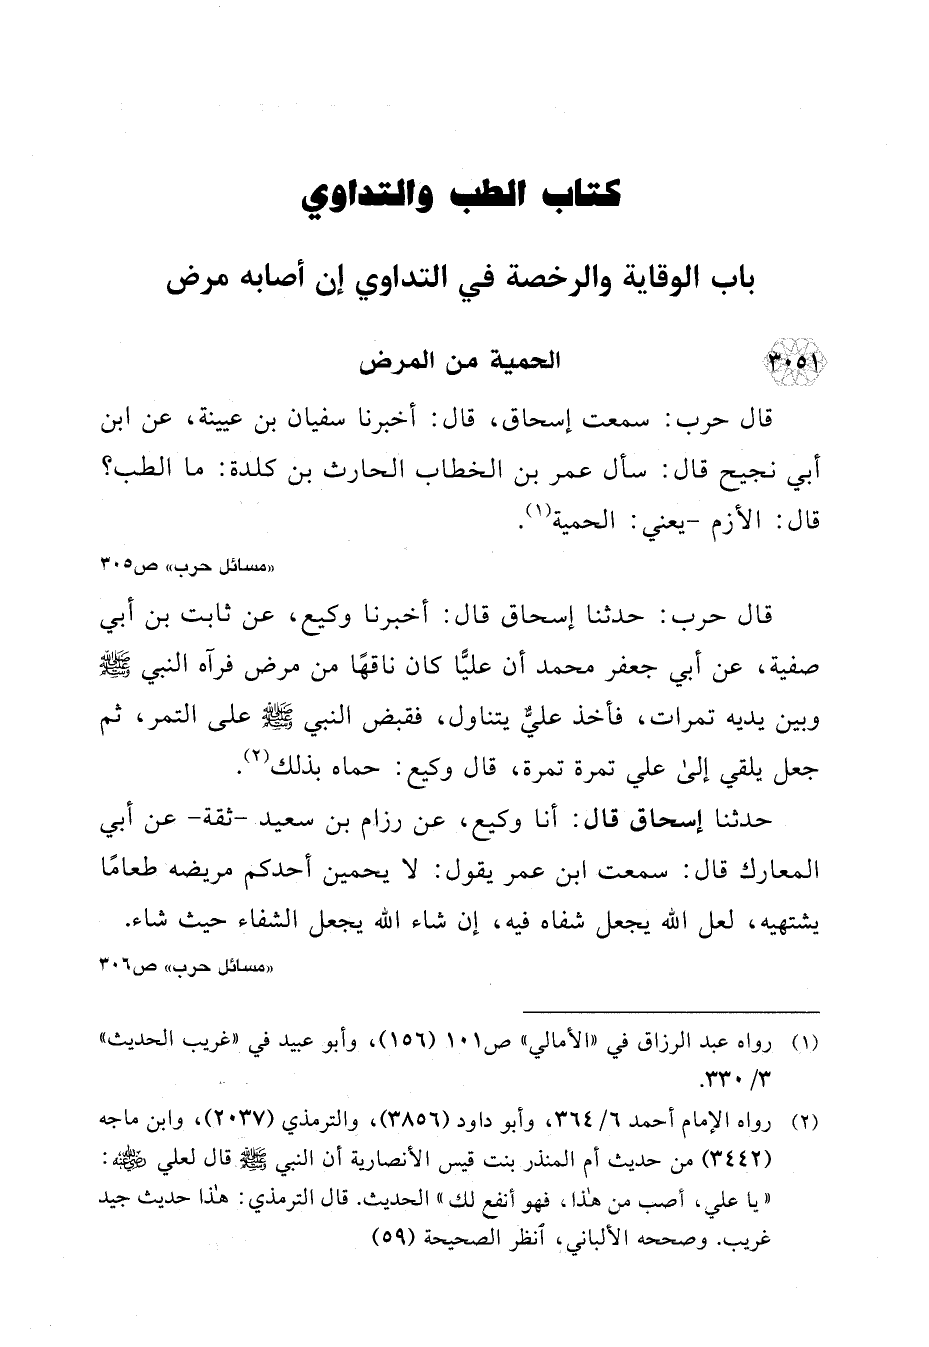 كتاب الطب والتداوي
باب الوقاية والرخصة في التداوي إن أصابه مرض
٣٠٥١ الحمية من المرض
قال حرب: سمعت إسحاق، قال: أخبرنا سفيان بن عيينة، عن ابن
أبي نجيح قال: سأل عمر بن الخطاب الحارث بن كلدة: ما الطب؟
قال: الأزم -يعني: الحمية(١).
«مسائل حرب» ص٣٠٥
قال حرب: حدثنا إسحاق قال: أخبرنا وكيع، عن ثابت بن أبي
صفية، عن أبي جعفر محمد أن عليًّا كان ناقهًا من مرض فرآه النبي ﷺ
وبين يديه تمرات، فأخذ عليٌّ يتناول، فقبض النبي ﷺ على التمر، ثم
جعل يلقي إلىٰ علي تمرة تمرة، قال وكيع: حماه بذلك(٢).
حدثنا إسحاق قال: أنا وكيع، عن رزام بن سعيد -ثقة- عن أبي
المعارك قال: سمعت ابن عمر يقول: لا يحمين أحدكم مريضه طعامًا
يشتهيه، لعل الله يجعل شفاه فيه، إن شاء الله يجعل الشفاء حيث شاء.
«مسائل حرب» ص٣٠٦
(١) رواه عبد الرزاق في «الأمالي» ص١٠١ (١٥٦)، وأبو عبيد في «غريب الحديث»
٣/ ٣٣٠.
(٢) رواه الإمام أحمد ٦/ ٣٦٤، وأبو داود (٣٨٥٦)، والترمذي (٢٠٣٧)، وابن ماجه
(٣٤٤٢) من حديث أم المنذر بنت قيس الأنصارية أن النبي ﷺ قال لعلي رضي الله عنه:
«يا علي، أصب من هٰذا، فهو أنفع لك» الحديث. قال الترمذي: هٰذا حديث جيد
غريب. وصححه الألباني، ٱنظر الصحيحة (٥٩)